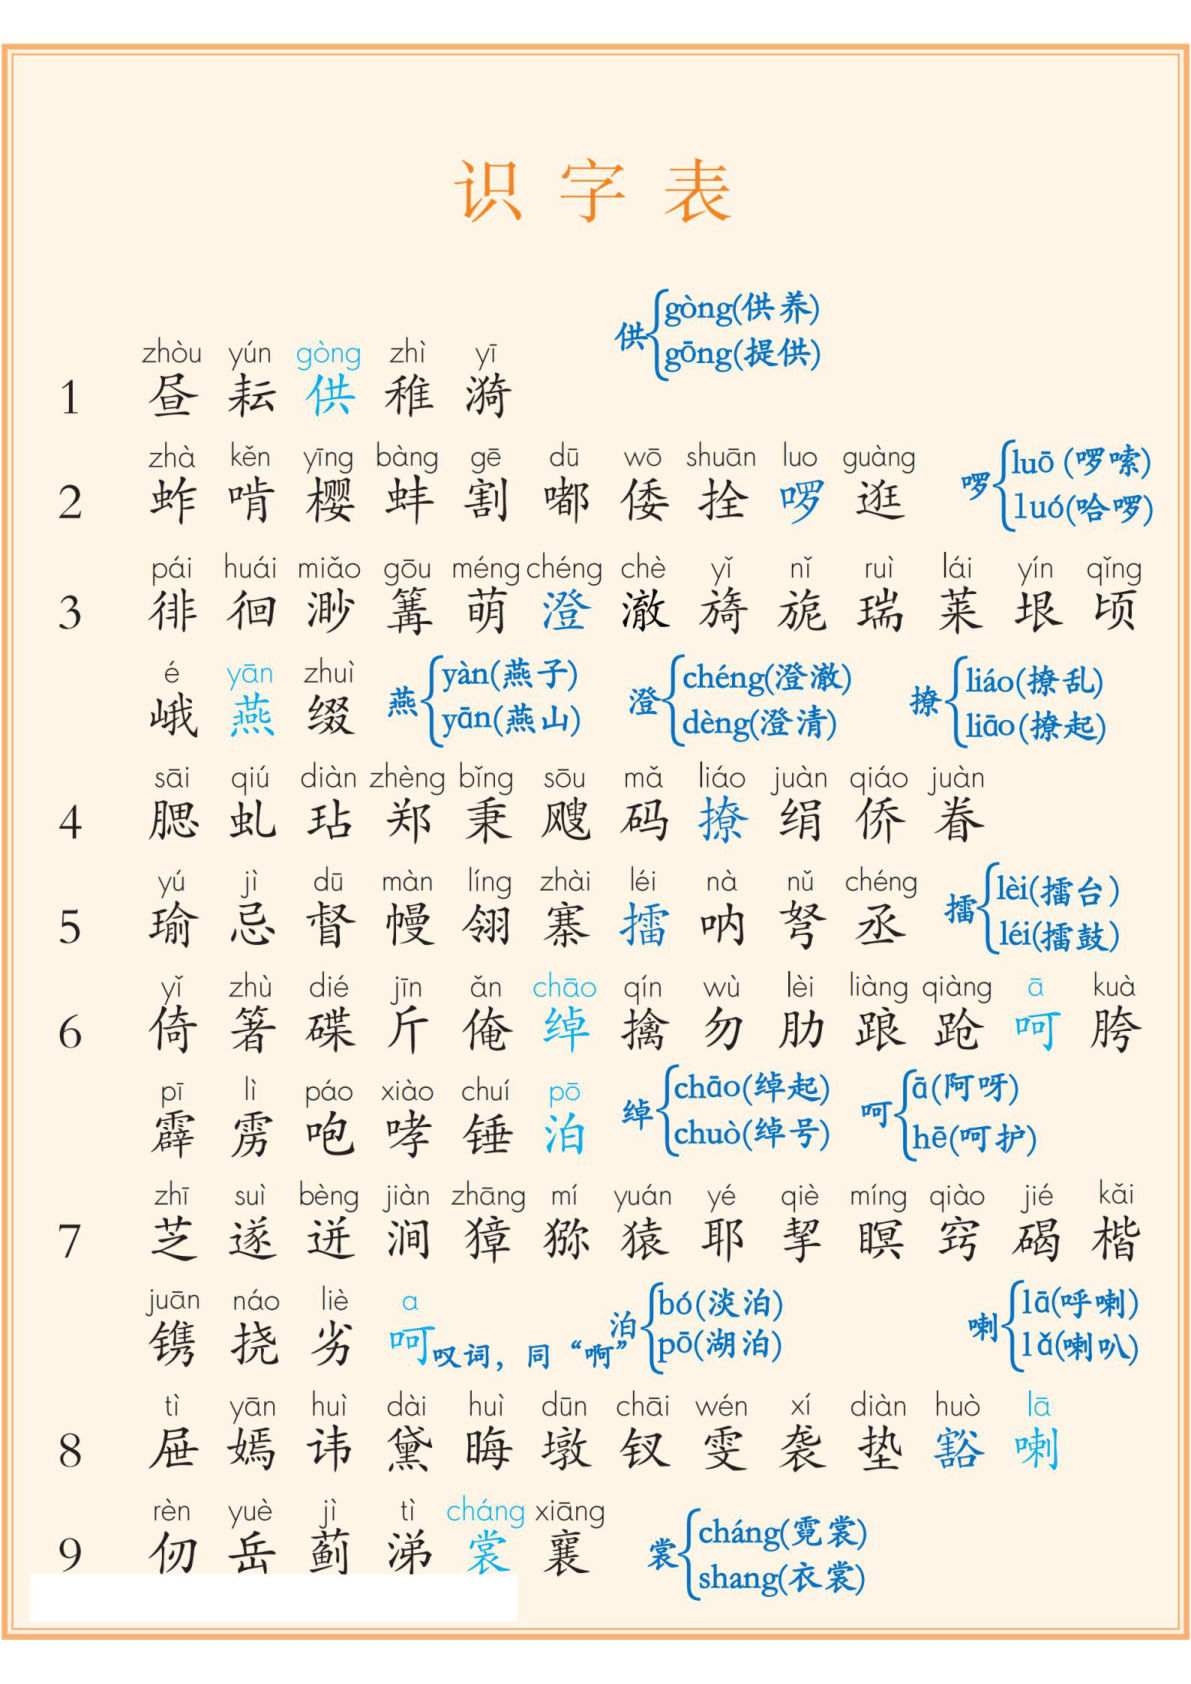 识字表
供 gòng(供养)
gōng(提供)
zhòu yún gòng zhì yī
1 昼 耘 供 稚 漪
zhà kěn yīng bàng gē dū wō shuān luo guàng
2 蚱 啃 樱 蚌 割 嘟 倭 拴 啰 逛
啰 luō(啰嗦)
luó(哈啰)
pái huái miǎo gōu méng chéng chè yǐ nǐ ruì lái yín qǐng
3 徘 徊 渺 篝 萌 澄 澈 旖 旎 瑞 莱 垠 顷
é yān zhuì
峨 燕 缀
燕 yàn(燕子)
yān(燕山)
澄 chéng(澄澈)
dèng(澄清)
撩 liáo(撩乱)
liāo(撩起)
sāi qiú diàn zhèng bǐng sōu mǎ liáo juàn qiáo juàn
4 腮 虬 玷 郑 秉 飕 码 撩 绢 侨 眷
yú jì dū màn líng zhài léi nà nǔ chéng
5 瑜 忌 督 幔 翎 寨 擂 呐 弩 丞
擂 lèi(擂台)
léi(擂鼓)
yǐ zhù dié jīn ǎn chāo qín wù lèi liàng qiàng ā kuà
6 倚 箸 碟 斤 俺 绰 擒 勿 肋 踉 跄 呵 胯
pī lì páo xiào chuí pō
霹 雳 咆 哮 锤 泊
绰 chāo(绰起)
chuò(绰号)
呵 ā(阿呀)
hē(呵护)
zhī suì bèng jiàn zhāng mí yuán yé qiè míng qiào jié kǎi
7 芝 遂 迸 涧 獐 猕 猿 耶 挈 瞑 窍 碣 楷
juān náo liè a
镌 挠 劣 呵 叹词，同“啊”
泊 bó(淡泊)
pō(湖泊)
喇 lā(呼喇)
lǎ(喇叭)
tì yān huì dài huì dūn chāi wén xí diàn huò lā
8 屉 嫣 讳 黛 晦 墩 钗 雯 袭 垫 豁 喇
rèn yuè jì tì cháng xiāng
9 仞 岳 蓟 涕 裳 襄
裳 cháng(霓裳)
shang(衣裳)